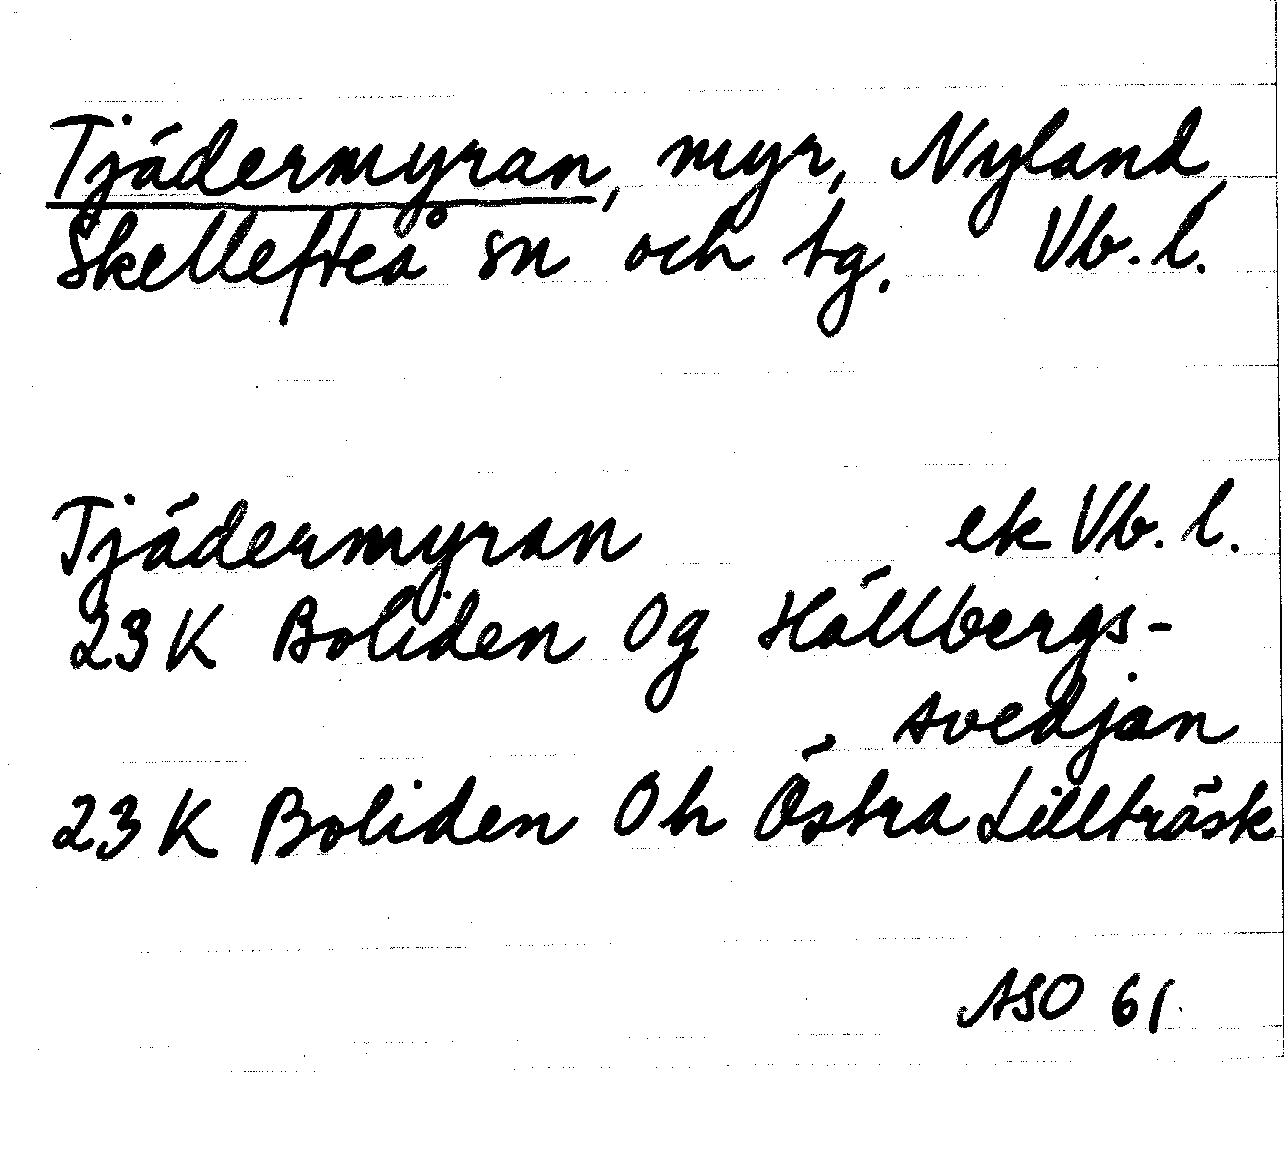 Tjädermyran, myr, Nyland,
Skellefteå sn och tg. Vb. l.
Tjädermyran ek Vb. l.
23 K Boliden 0g Hällbergs-
svedjan
23 K Boliden 0h Östra Lillträsk
ASO 61